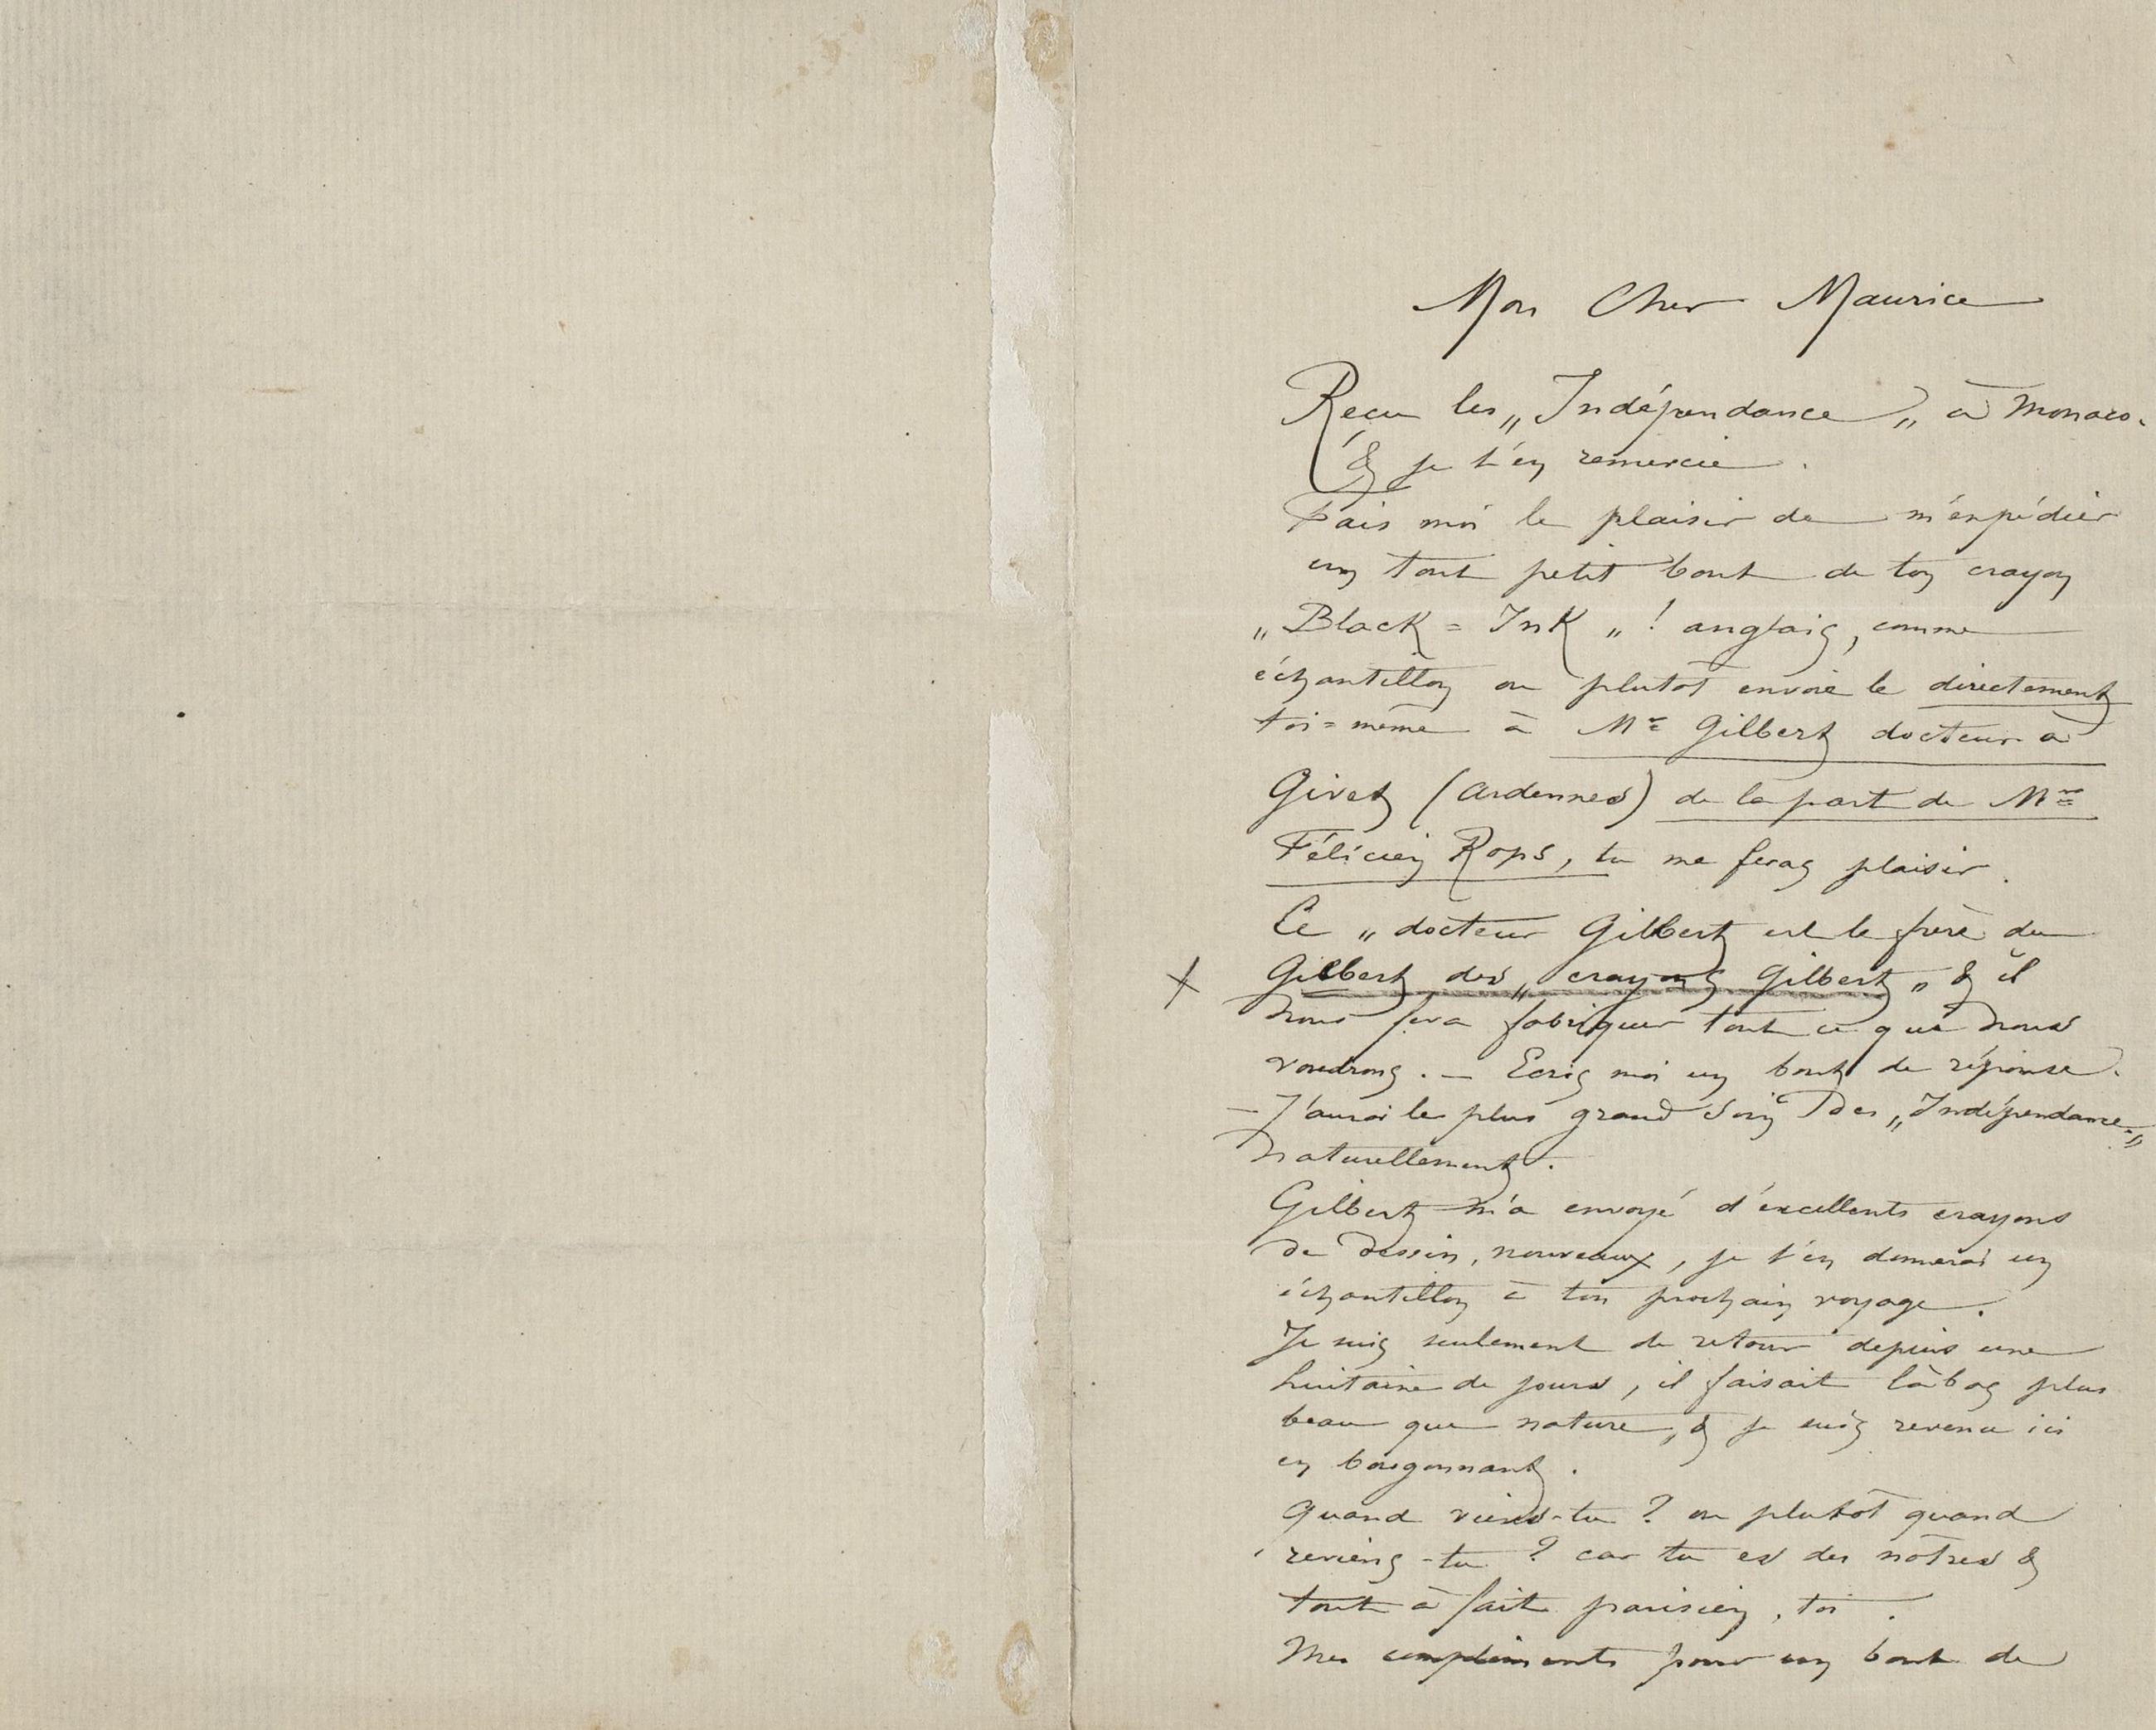 Mon Cher Maurice
Reçu les „Indépendance„ à Monaco.
& je t'en remercie.
Fais moi le plaisir de m'expédier
un tout petit bout de ton crayon
„Black = Ink„! anglais, comme
échantillon ou plutot envoie le directement
toi=même à Mr Gilbert docteur à
Givet (Ardennes) de la part de Mr
Félicien Rops, tu me feras plaisir.
Ce „docteur Gilbert est le frère du
Gilbert des „crayons Gilbert„ & il
nous fera fabriquer tout ce que nous
voudrons. — Ecris moi un bout de réponse.
— J'aurai le plus grand soin des „Indépendance„
naturellement.
Gilbert m'a envoyé d'excellents crayons
de dessin, nouveaux, je t'en donnerai un
échantillon à ton prochain voyage.
Je suis seulement de retour depuis une
huitaine de jours, il faisait làbas plus
beau que nature, & je suis revenu ici
en bougonnant.
Quand viens-tu? ou plutôt quand
reviens-tu? car tu es des nôtres &
tout à fait parisien, toi.
Mes compliments pour un bout de